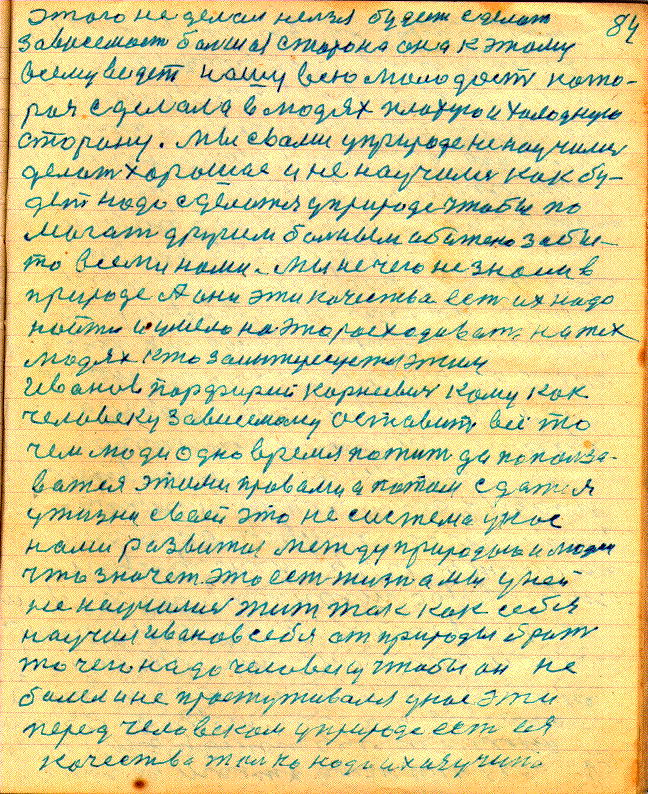 84
этого не делал нелзя будет сделат
зависемост болшая сторона она к этому
всему ведет нашу всю молодост кото-
рая сделала в людях плохую и холодную
сторону. Мы свами уприроде не научилис
делат хорошае и не научилис как бу-
дет надо сделатся уприроде чтобы по
могат другим болным обижено забы-
то всеми нами. Мы нечего не знаем в
природе А они эти качества ест их надо
найти и умело на это росходоват на тех
людях кто заинтересуется этим
Иванов Порфирий Корневич кому как
человеку зависемому оставит всё то
чем люди одно время
ватся этими провами а потом сдатся
ужизни своей это не система унас
нами развитая между природою и людми
что значет это ест жизн а мы уней
не научилис жит так как себя
научил Иванов себя от природы брат
то чего надо человеку чтобы он не
болел и не простуживался унас эти
перед человеком уприроде ест
качества толко надо их изучит